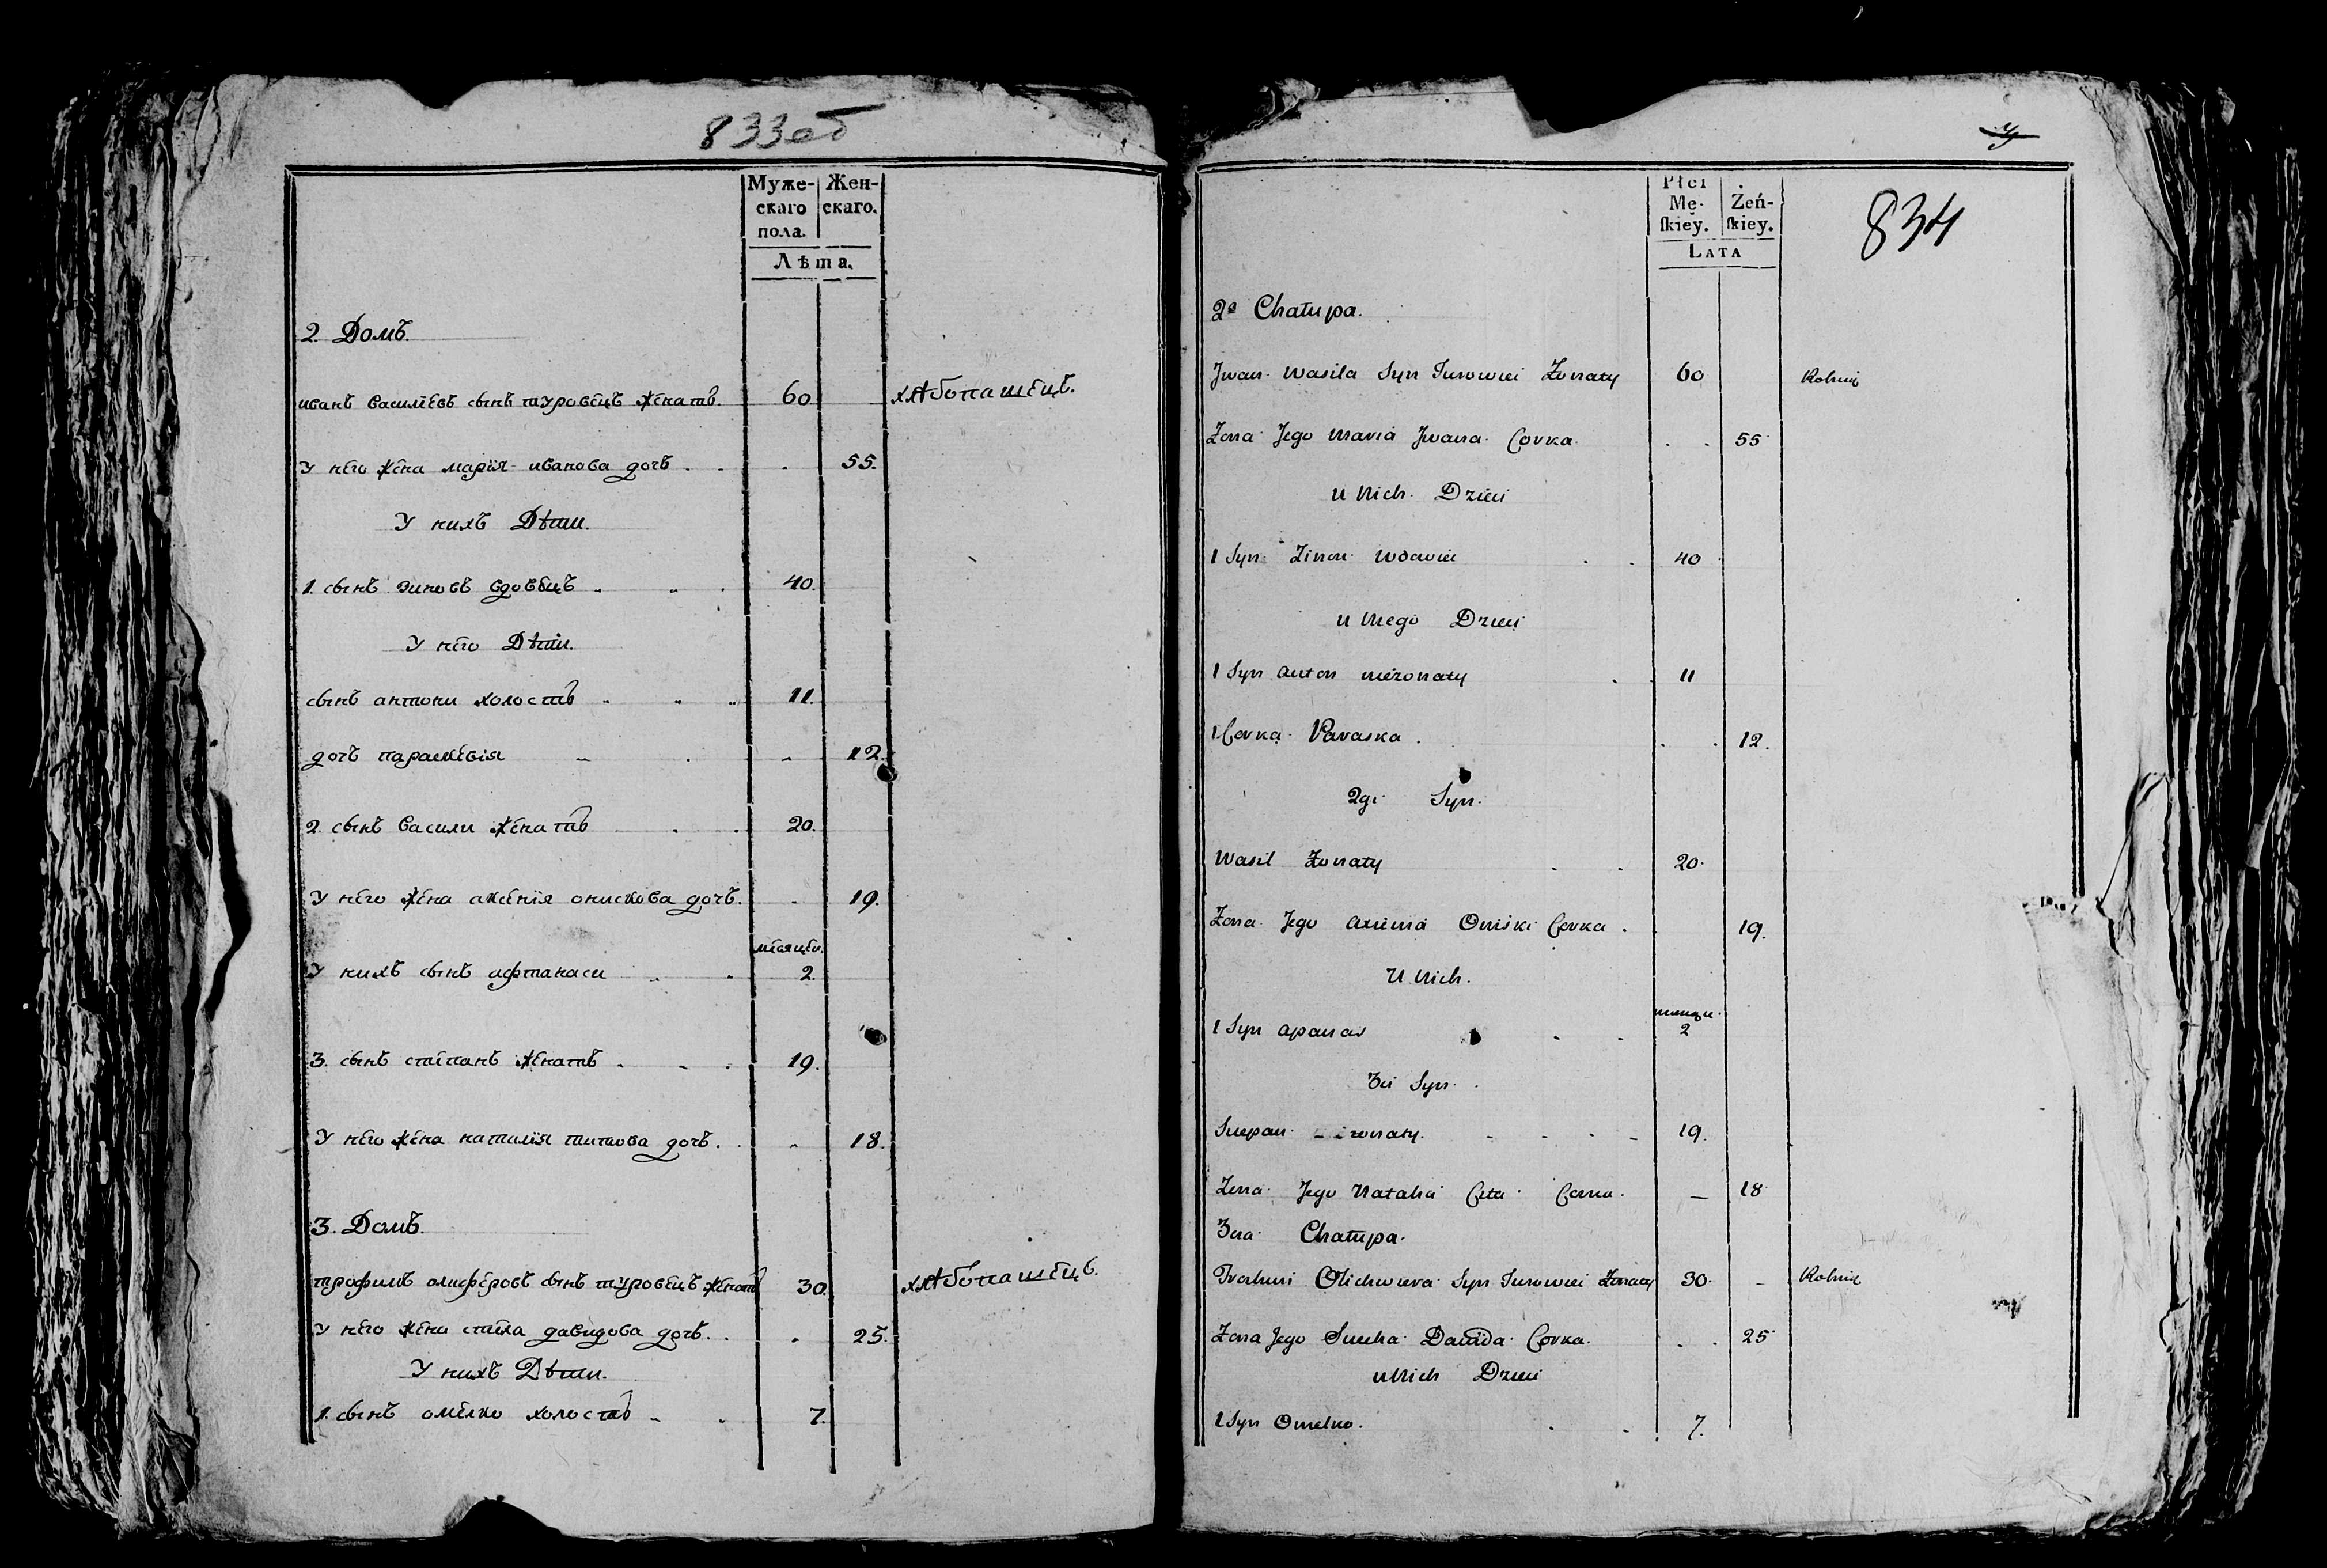 833об
Муже-
скаго
пола.
Жен-
скаго.
Лѣта.
2. Домъ.
иванъ василѣвъ сынъ туровецъ женатъ. 60 хлѣбопашецъ.
У него жена марїя иванова дочь . . . 55.
У нихъ Дѣти.
1. сынъ зиновъ вдовецъ . . . 40.
У него Дѣти.
сынъ антони холостъ . . . 11.
дочь параскевїя . . . 12.
2. сынъ васили женатъ . . 20.
У него жена аксенїя онискова дочь. . 19.
месяцев.
У нихъ сынъ афтанаси . . 2.
3. сынъ степанъ женатъ . . . 19.
У него жена наталїя титова дочь . . . 18.
3. Домъ.
трофимъ олиферовъ сынъ туровецъ женатъ 30. хлѣбопашецъ.
У него жена стеха давидова дочь . . . 25.
У нихъ Дѣти.
1. сынъ омелко холостъ . . 7.
4
834
Płci
Mę-
ſkiey.
Żeń-
ſkiey.
LATA
2a Chałupa.
Jwan Wasila Syn Turowiec Żonaty 60 Rolnik
Żona Jego Maria Jwana Corka . . 55
u Nich Dzieci
1 Syn Zinon Wdowiec . . 40
u Niego Dzieci
1 Syn Anton nieżonaty . . 11
1 Corka Paraska . . . 12.
2gi Syn.
Wasil Żonaty . . 20.
Żona Jego Axienia Oniski Corka . 19.
U Nich.
1 Syn Apanas . . 2
3ci Syn.
Stepan żonaty. - - - - 19.
Żona Jego Natalia Tita Corka. — 18
3cia Chałupa.
Trochim Olichwiera Syn Turowiec Żonaty 30. - Rolnik
Żona Jego Stecha Dawida Corka. . . 25
u Nich Dzieci
1 Syn Omelko. . . 7.